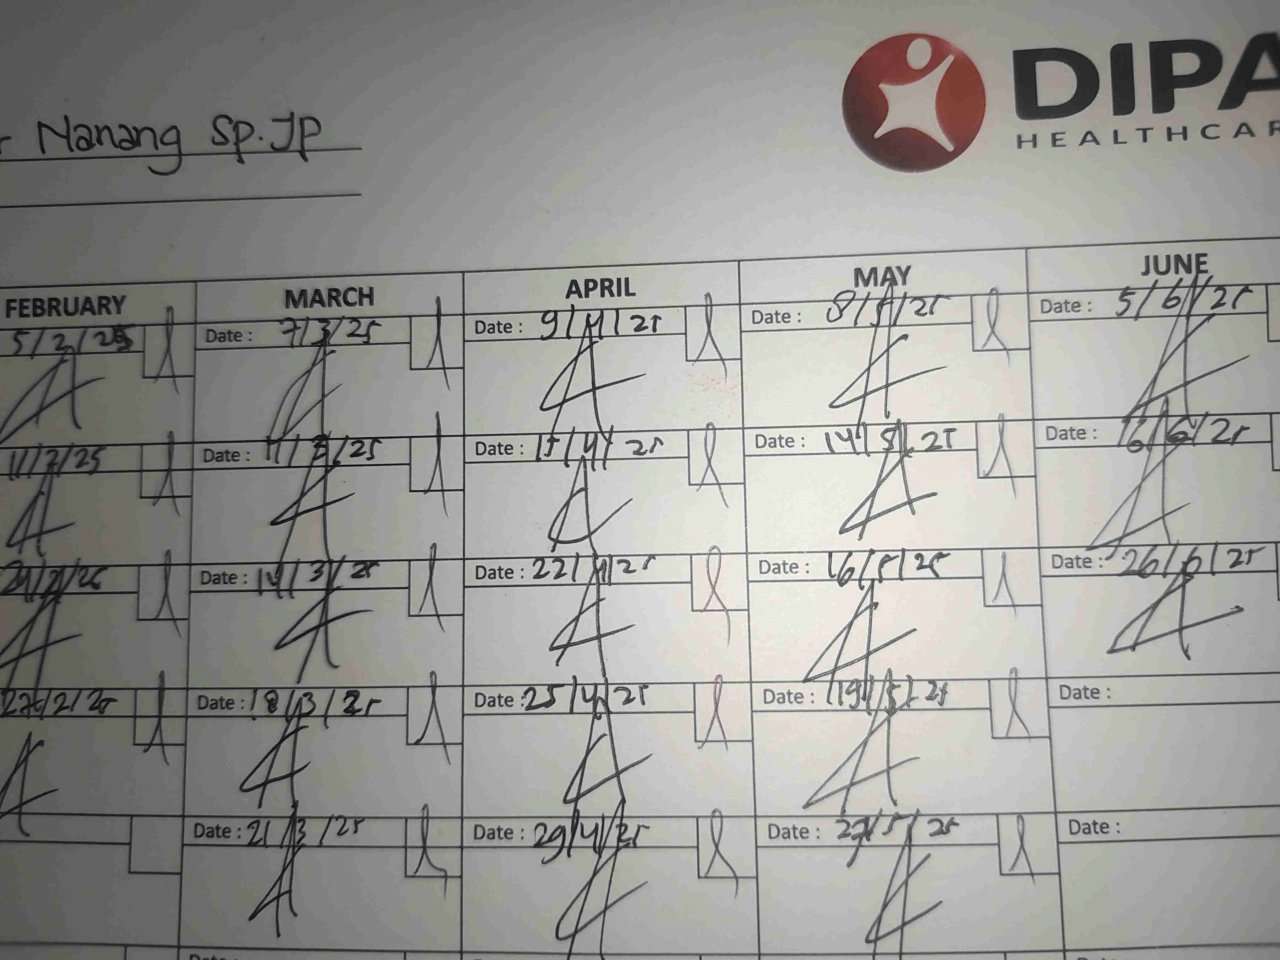 DIPA
HEALTHCAR
Nanang Sp.JP
FEBRUARY MARCH APRIL MAY JUNE
5/2/25 Date : 7/3/25 Date : 9/4/25 Date : 8/5/25 Date : 5/6/25
11/2/25 Date : 11/3/25 Date : 15/4/25 Date : 14/5/25 Date : 16/6/25
Date : 14/3/25 Date : 22/4/25 Date : 16/5/25 Date : 26/6/25
27/2/25 Date : 18/3/25 Date : 25/4/25 Date : 19/5/25 Date :
Date : 21/3/25 Date : 29/4/25 Date : 27/5/25 Date :